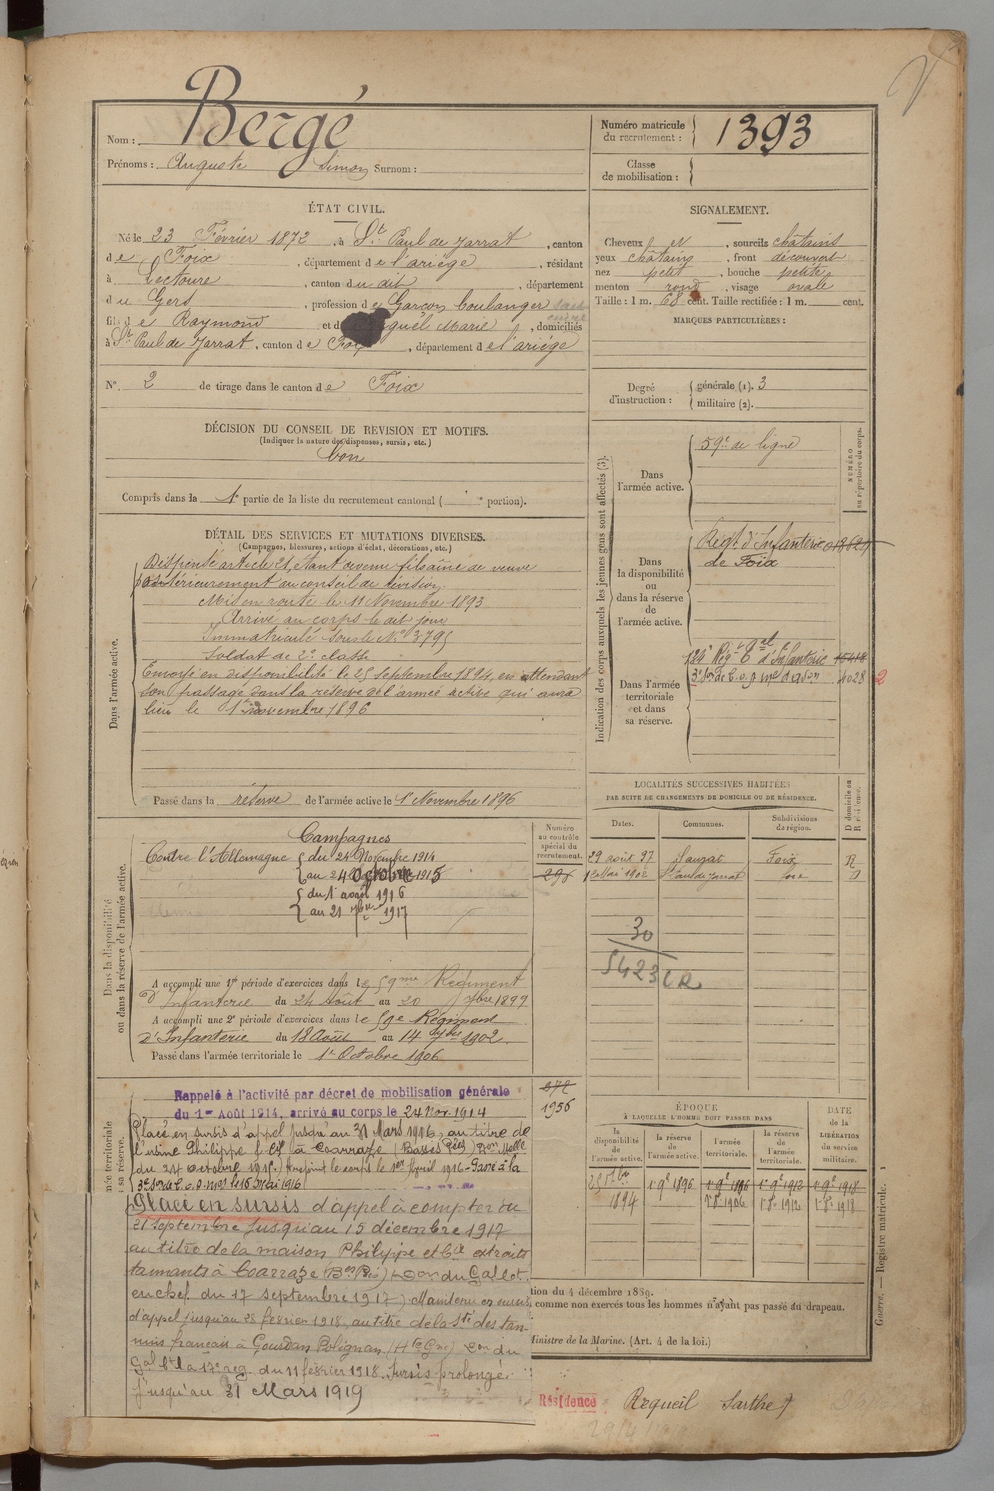 Nom : Bergé
Prénoms : Auguste Simon Surnom :
Numéro matricule du recrutement : 1393
Classe de mobilisation :
ÉTAT CIVIL.
Né le 23 Février 1872, à St Paul de Jarrat, canton
de Foix, département de l'ariège, résidant
à Lectoure, canton du dit, département
du Gers, profession de Garçon boulanger
fils de Raymond et de Marie, domiciliés
à St Paul de Jarrat, canton de Foix, département de l'ariége
N° 2 de tirage dans le canton de Foix
SIGNALEMENT.
Cheveux, sourcils chatains
yeux chatains, front découvert
nez petit, bouche petite
menton rond, visage ovale
Taille : 1 m. 68 cent. Taille rectifiée : 1 m. cent.
MARQUES PARTICULIÈRES :
Degré d'instruction : générale (1). 3
militaire (2).
DÉCISION DU CONSEIL DE REVISION ET MOTIFS.
(Indiquer la nature des dispenses, sursis, etc.)
bon
Compris dans la 1e partie de la liste du recrutement cantonal ( e portion).
DÉTAIL DES SERVICES ET MUTATIONS DIVERSES.
(Campagnes, blessures, actions d'éclat, décorations, etc.)
Dans l'armée active.
Dispensé article 21, étant devenu fils aîné de veuve
postérieurement au conseil de révision
Mis en route le 11 Novembre 1893
Arrivé au corps le dit jour
Immatriculé sous le N° 3795
Soldat de 2e classe
Envoyé en disponibilité le 25 Septembre 1894, en attendant
son passage dans la réserve de l'armée active qui aura
lieu le 1er novembre 1896
Passé dans la réserve de l'armée active le 1er Novembre 1896
Indication des corps auxquels les jeunes gens sont affectés (3).
NUMÉRO au répertoire du corps.
Dans l'armée active.
59e de ligne
Dans la disponibilité ou dans la réserve de l'armée active.
Régt d'Infanterie
de Foix
Dans l'armée territoriale et dans sa réserve.
d'Infanterie
4028
LOCALITÉS SUCCESSIVES HABITÉES
PAR SUITE DE CHANGEMENTS DE DOMICILE OU DE RÉSIDENCE.
Dates. Communes. Subdivisions de région. D domicile ou R résidence.
29 août 97 Saurat Foix R
Mai 1902 St Paul de Jarrat D
30
5423
Dans la disponibilité ou dans la réserve de l'armée active.
Numéro au contrôle spécial du recrutement.
Campagnes
Contre l'Allemagne du 24 Novembre 1914
au 24 Octobre 1915
du 1er avril 1916
au 21 7bre 1917
A accompli une 1re période d'exercices dans le 59me Régiment
d'Infanterie du 24 Août au 20 7bre 1899
A accompli une 2e période d'exercices dans le 59e Régiment
d'Infanterie du 18 Août au 14 7bre 1902
Passé dans l'armée territoriale le 1er Octobre 1906
1956
Rappelé à l'activité par décret de mobilisation générale
du 1er Août 1914, arrivé au corps le 24 Nov. 1914
Placé en sursis d'appel jusqu'au 31 Mars 1916, au titre de
l'usine Philippe & Cie à Coarraze (Basses Pées)
du 24 octobre 1915. Rejoint le corps le 1er Avril 1916 - Passé à la
le 16 Mai 1916
Placé en sursis d'appel à compter du
21 septembre jusqu'au 15 décembre 1917
au titre de la maison Philippe et Cie extraits
tannants à Coarraze (Bses Prés) Don du Gal Cdt
en chef du 17 septembre 1917. Maintenu en sursis
d'appel jusqu'au 28 février 1918, au titre de la Sté des tan-
nins français à Gourdan Polignan (Hte Gne) Don du
Gal Ct la 17e reg. du 11 février 1918. Sursis prolongé
jusqu'au 31 Mars 1919
ÉPOQUE
À LAQUELLE L'HOMME DOIT PASSER DANS
la disponibilité de l'armée active. la réserve de l'armée active. l'armée territoriale. la réserve de l'armée territoriale.
DATE de la LIBÉRATION du service militaire.
1894
tion du 4 décembre 1889.
comme non exercés tous les hommes n'ayant pas passé au drapeau.
Ministre de la Marine. (Art. 4 de la loi.)
Guerre. — Registre matricule. 1
Résidence Requeil Sarthe